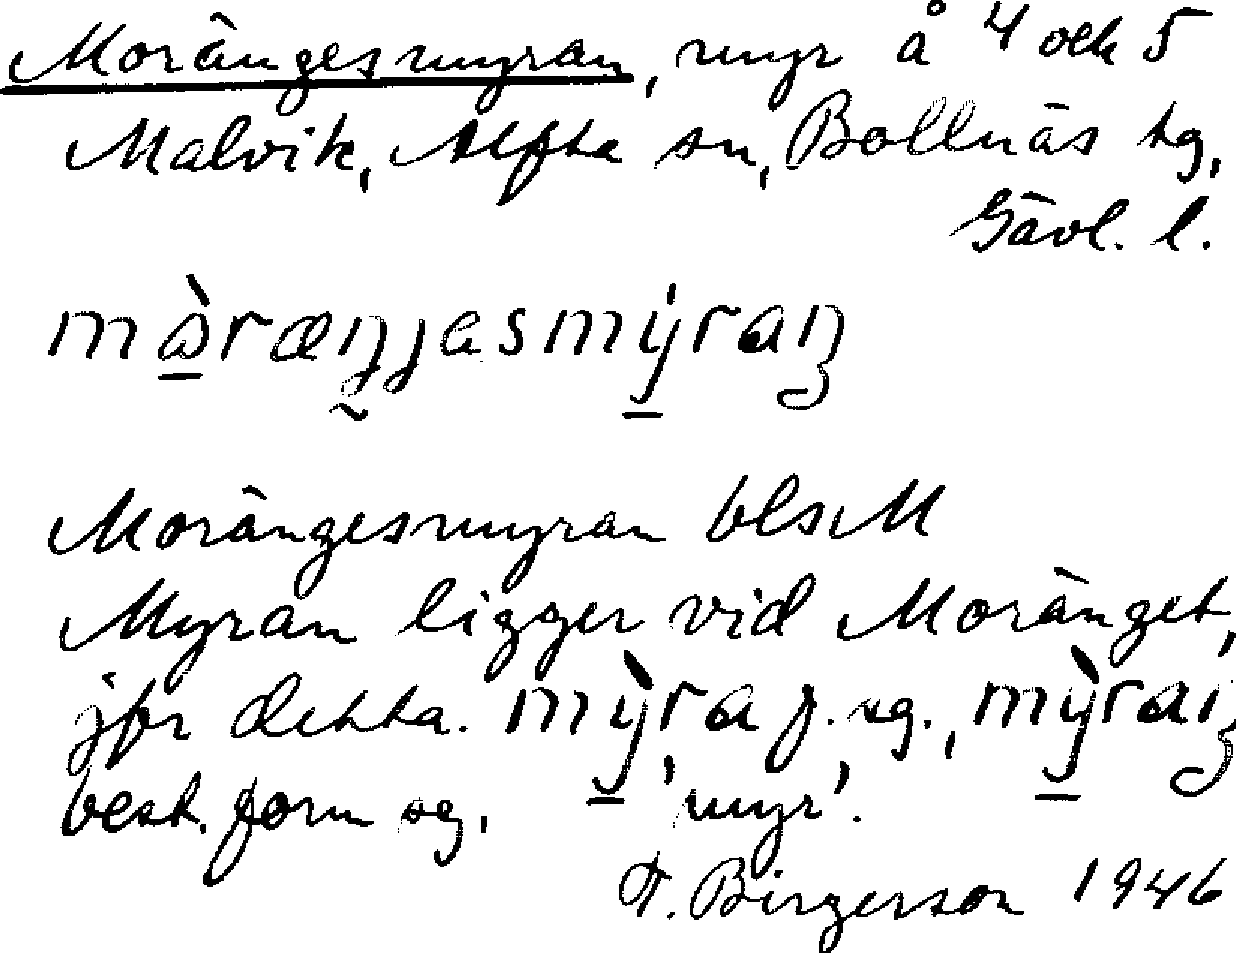 Morängesmyran, myr å 4 och 5
Malvik, Alfta sn, Bollnäs tg,
Gävl. l.
Morängesmyran bls M
Myran ligger vid Moränget,
jfr detta. mỳra f. sg.,
best. form sg. 'myr'.
T. Birgerson 1946